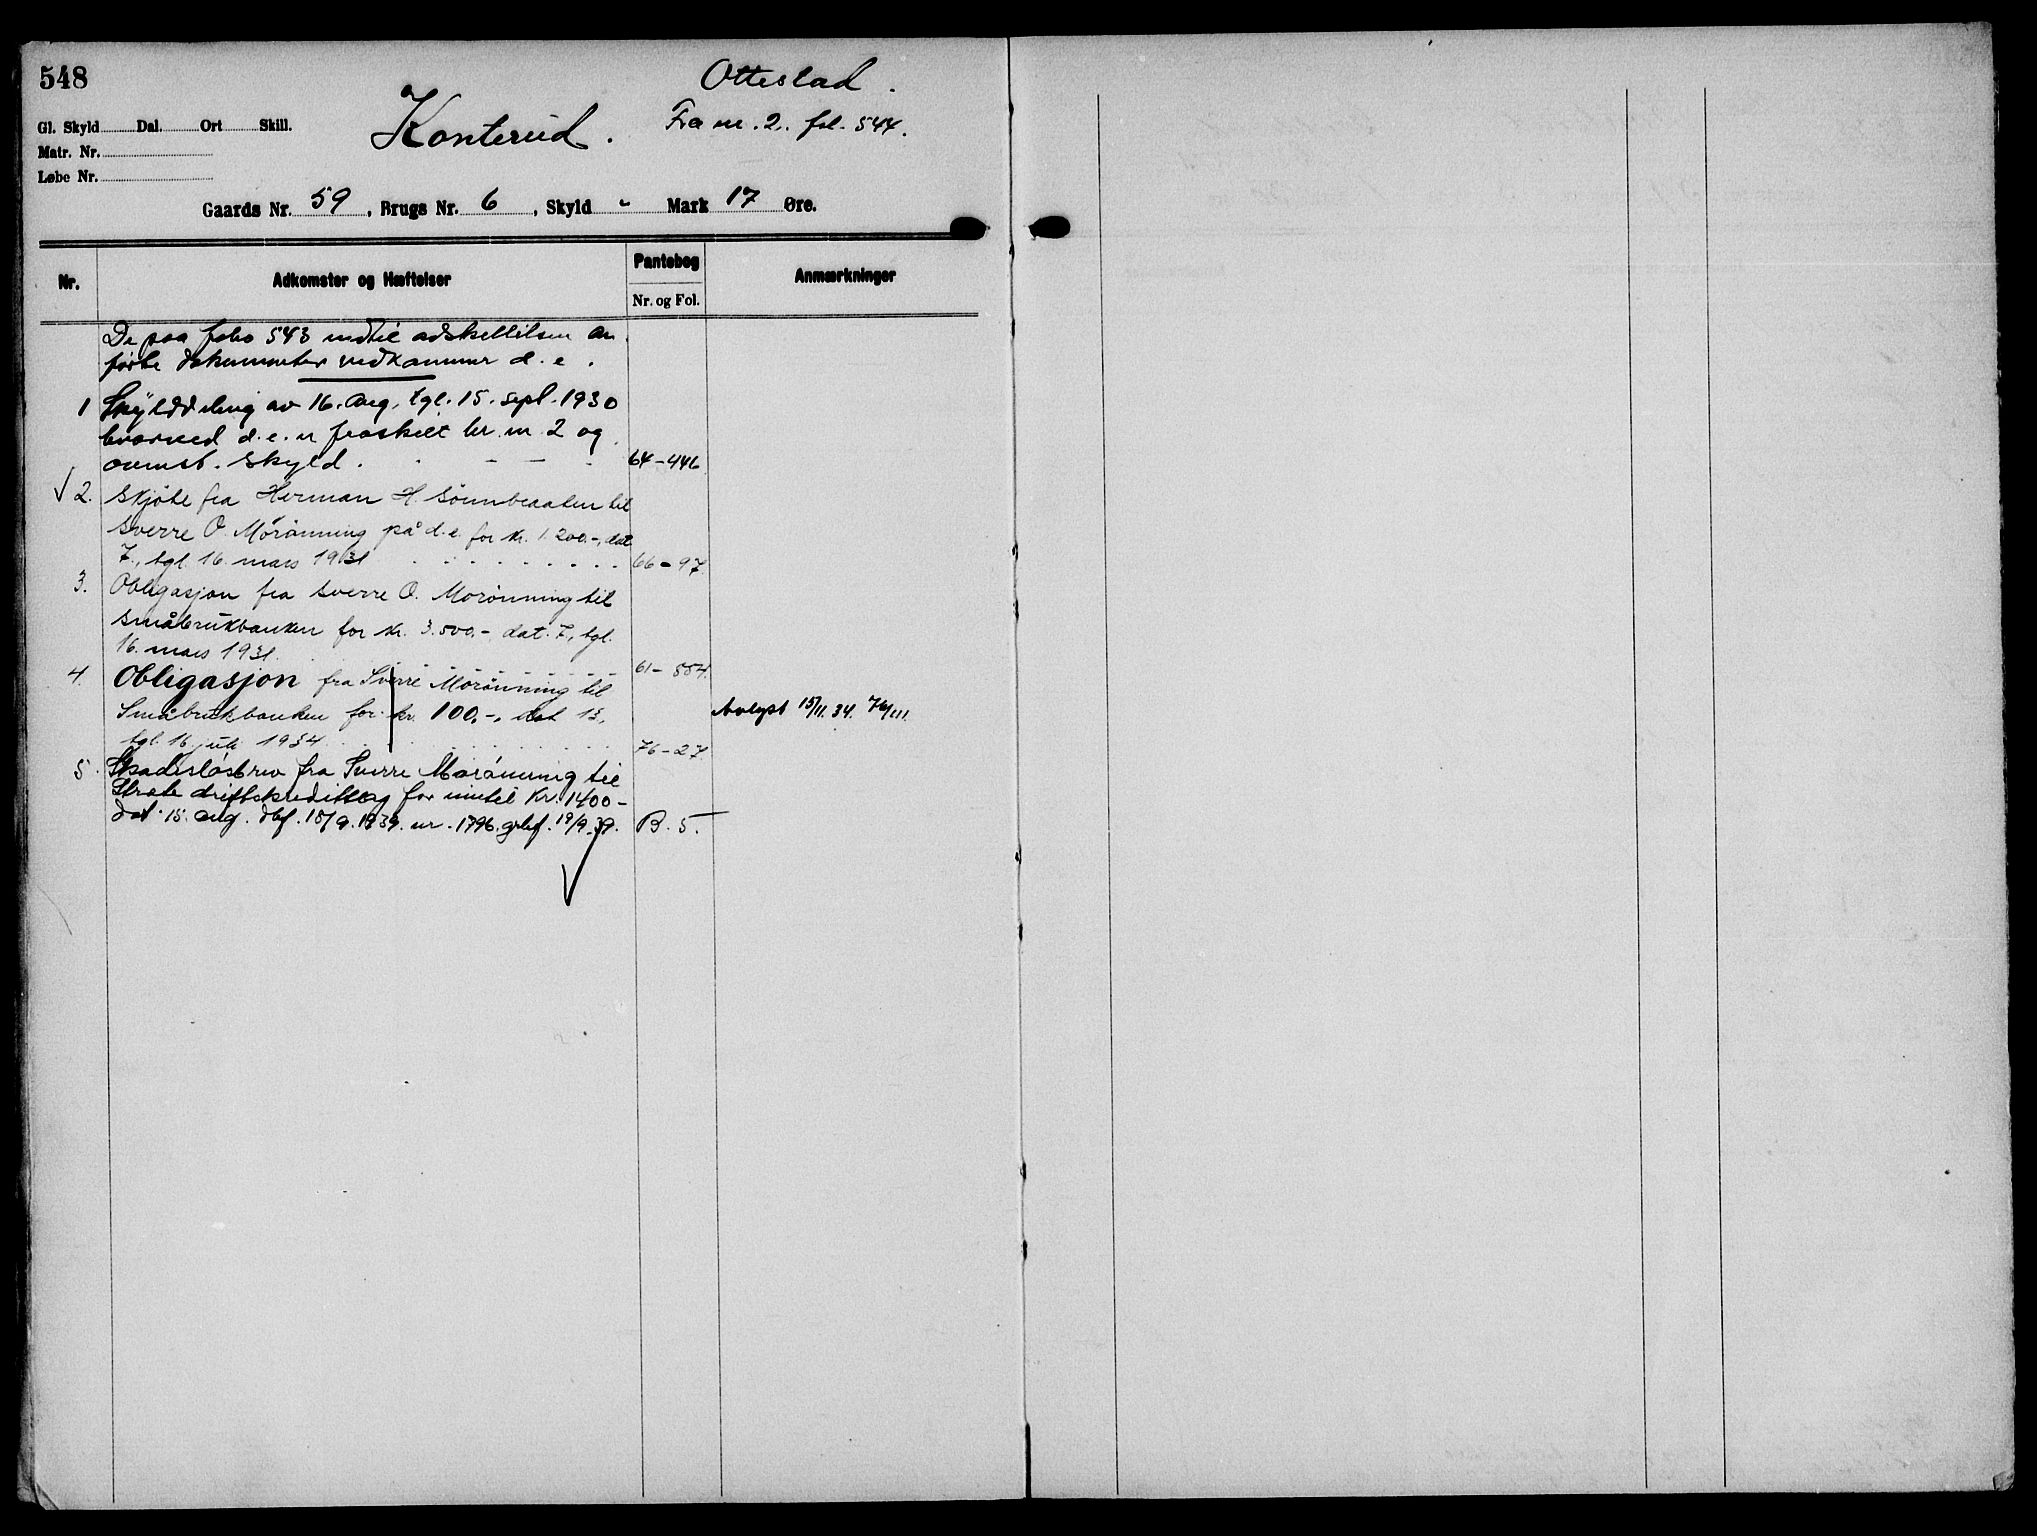 548
Ottestad.
Gl. Skyld Dal. Ort Skill.
Konterud.
Fra nr. 2. fol. 544.
Matr. Nr.
Løbe Nr.
Gaards Nr. 59, Brugs Nr. 6, Skyld - Mark 17 Øre.
Nr. Adkomster og Hæftelser Pantebog Anmærkninger
Nr. og Fol.
De paa folio 543 indtil adskillelsen an
førte dokumenter vedkommer d. e.
1 Skylddeling av 16. Aug. tgl. 15. sept. 1930
hvorved d. e. er fraskilt br. nr. 2 og
ovenst. skyld. 64-446
√ 2. Skjøte fra Herman H. til
Sverre O. Morønning på d. e. for kr. 1.200.-, dat
7., tgl. 16. mars 1931 66-97.
3. Obligasjon fra Sverre O. Morønning til
Småbrukbanken for kr. 3.500.-, dat. 7., tgl.
16. mars 1931. 61-584.
4. Obligasjon fra Sverre Morønning til
Småbrukbanken for kr. 100.-, dat 13.,
tgl. 16 juli 1934 76-27.
Avlyst 15/11. 34. 76/111.
5. Skadesløsbrev fra Sverre Morønning til
driftskredittlag for inntil Kr. 1400-
dat. 15. aug. dbf. 18/9. 1939. nr. 1796. grbf. 19/9. 39. B. 5.